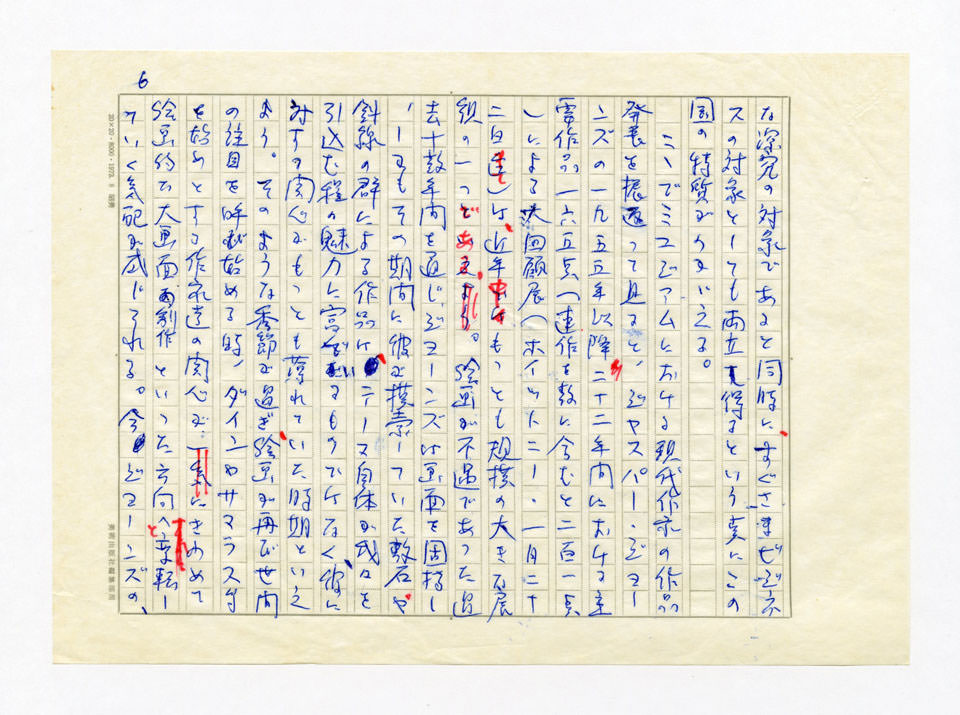 6
な深究の対象であると同時に、すぐさまビジネ
スの対象としても両立し得るという点にこの
国の特質がうかがえる。
ここでミュゼアムにおける現代作家の作品
発表を振返って見ると、ジャスパー・ジョー
ンズの一九五五年以降、二十二年間における主
要作品一六五点(連作を数に含むと二百一点
)による大回顧展(ホイットニー・一月二十
二日まで)は、近年中もっとも規模の大きな展
観の一つであろう。絵画が不遇であった過
去十数年間を通じ、ジョーンズは画面を固持し
、しかもその期間に彼が摸索していた敷石や、
斜線の群による作品は、ニュース自体が我々を
引込む程の魅力に富むものではなく、彼に
対する関心がもっとも薄れていた時期といえ
よう。そのような季節が過ぎ、絵画が再び世間
の注目を呼び始める時、ダインやサマラス等
を始めとする作家達の関心が一気にきわめて
絵画的な大画面制作といった方向へと転
ていく気配が感じられる。今、ジョーンズの、
20×20・8000・1973. 8 昭美
美術出版社編集部用